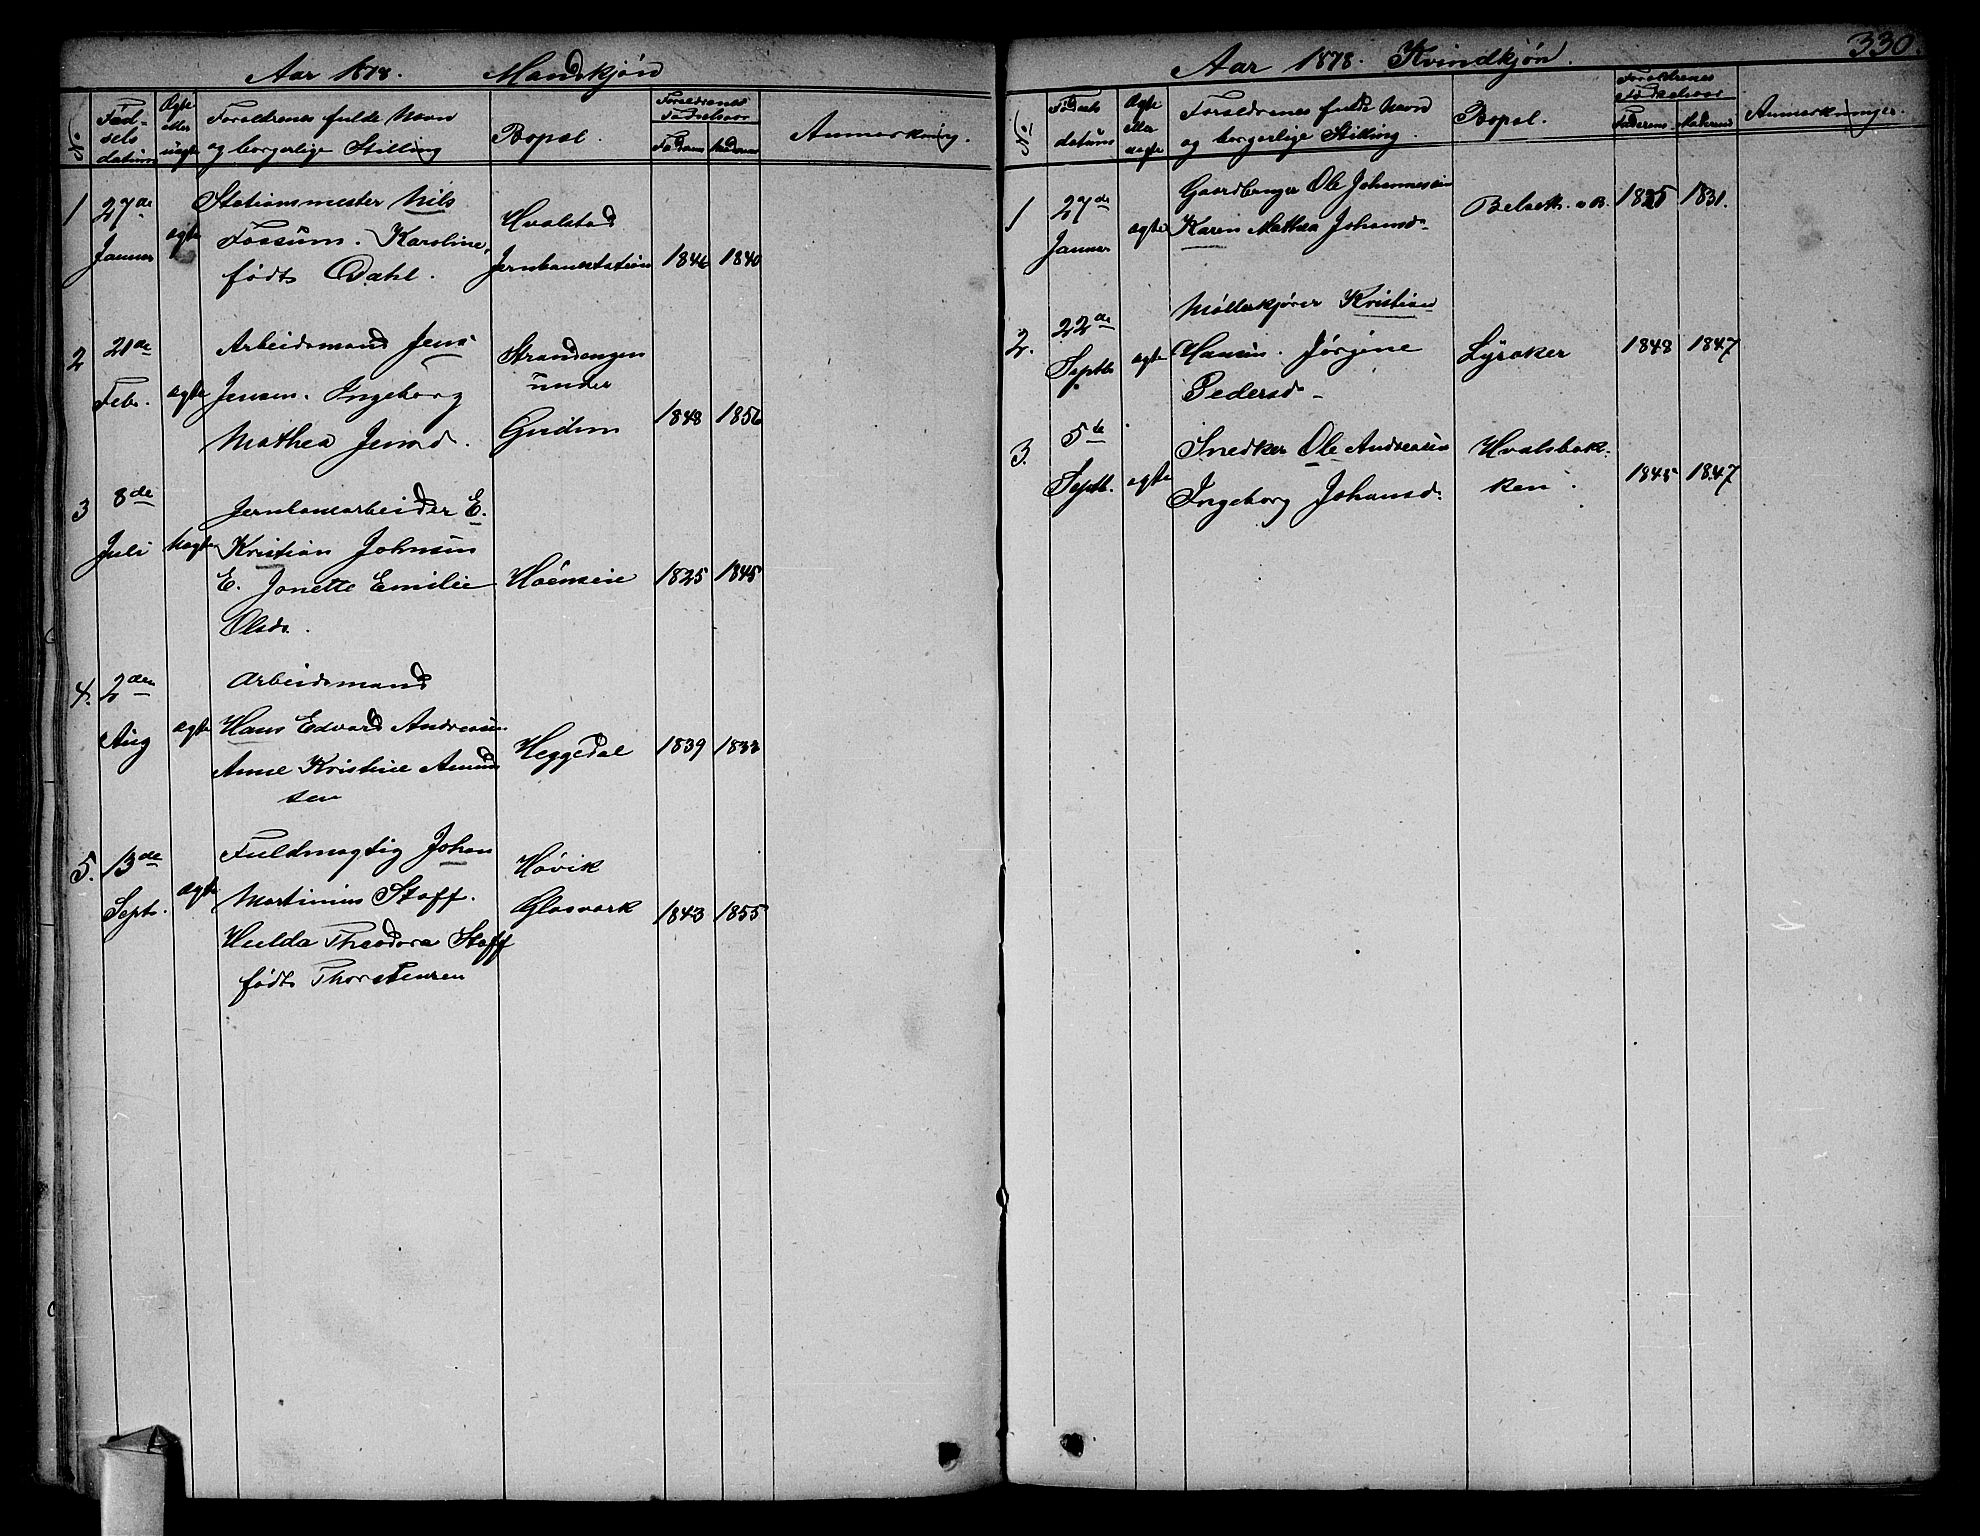 Aar 1878. Mandskjøn
No. Fødselsdatum Ægte eller uægte Forældrenes fulde Navn og borgerlige Stilling Bopæl. Forældrenes Fødselsaar Faderens Moderens Anmærkning.
1 27de Januar ægte Stationsmester Nils
Fossum. Karoline,
født Dahl.
Hvalstad
Jernbanestation 1846 1840
2 21de Febr. ægte Arbeidsmand Jens
Jensen. Ingeborg
Mathea Jensd.
Strandengen
under
1848 1856
3 8de Juli Uægte Jernbanearbeider E.
Kristian Johnsen
E. Jonette Emilie
Olsdr.
1825 1845
4. 2den Aug ægte Arbeidsmand
Hans Edvard Andreasen
Anne Kristine Amund
sen
Heggedal 1839 1833
5. 13de Sept. ægte Fuldmægtig Johan
Martinius Staff.
Hulda Theodora Staff
født Thorstensen
Høvik
Glasværk 1843 1855
330.
Aar 1878. Kvindkjøn.
No. Fødselsdatum Ægte eller uægte Forældrenes fulde Navn og borgerlige Stilling Bopæl. Forældrenes Fødselsaar Faderens Moderens Anmærkninger.
1 27de Januar ægte Gaardbruger Ole Johannesen
Karen Mathea Johansd.
1825 1831.
2. 22de Septbr ægte Møllekjører Kristian
Hansen. Jørgine
Pedersd.
Lysaker 1848 1847
3. 5te Septb. ægte Snedker Ole Andreasen
Ingeborg Johansd.
Hvalsbak-
ken. 1845 1847